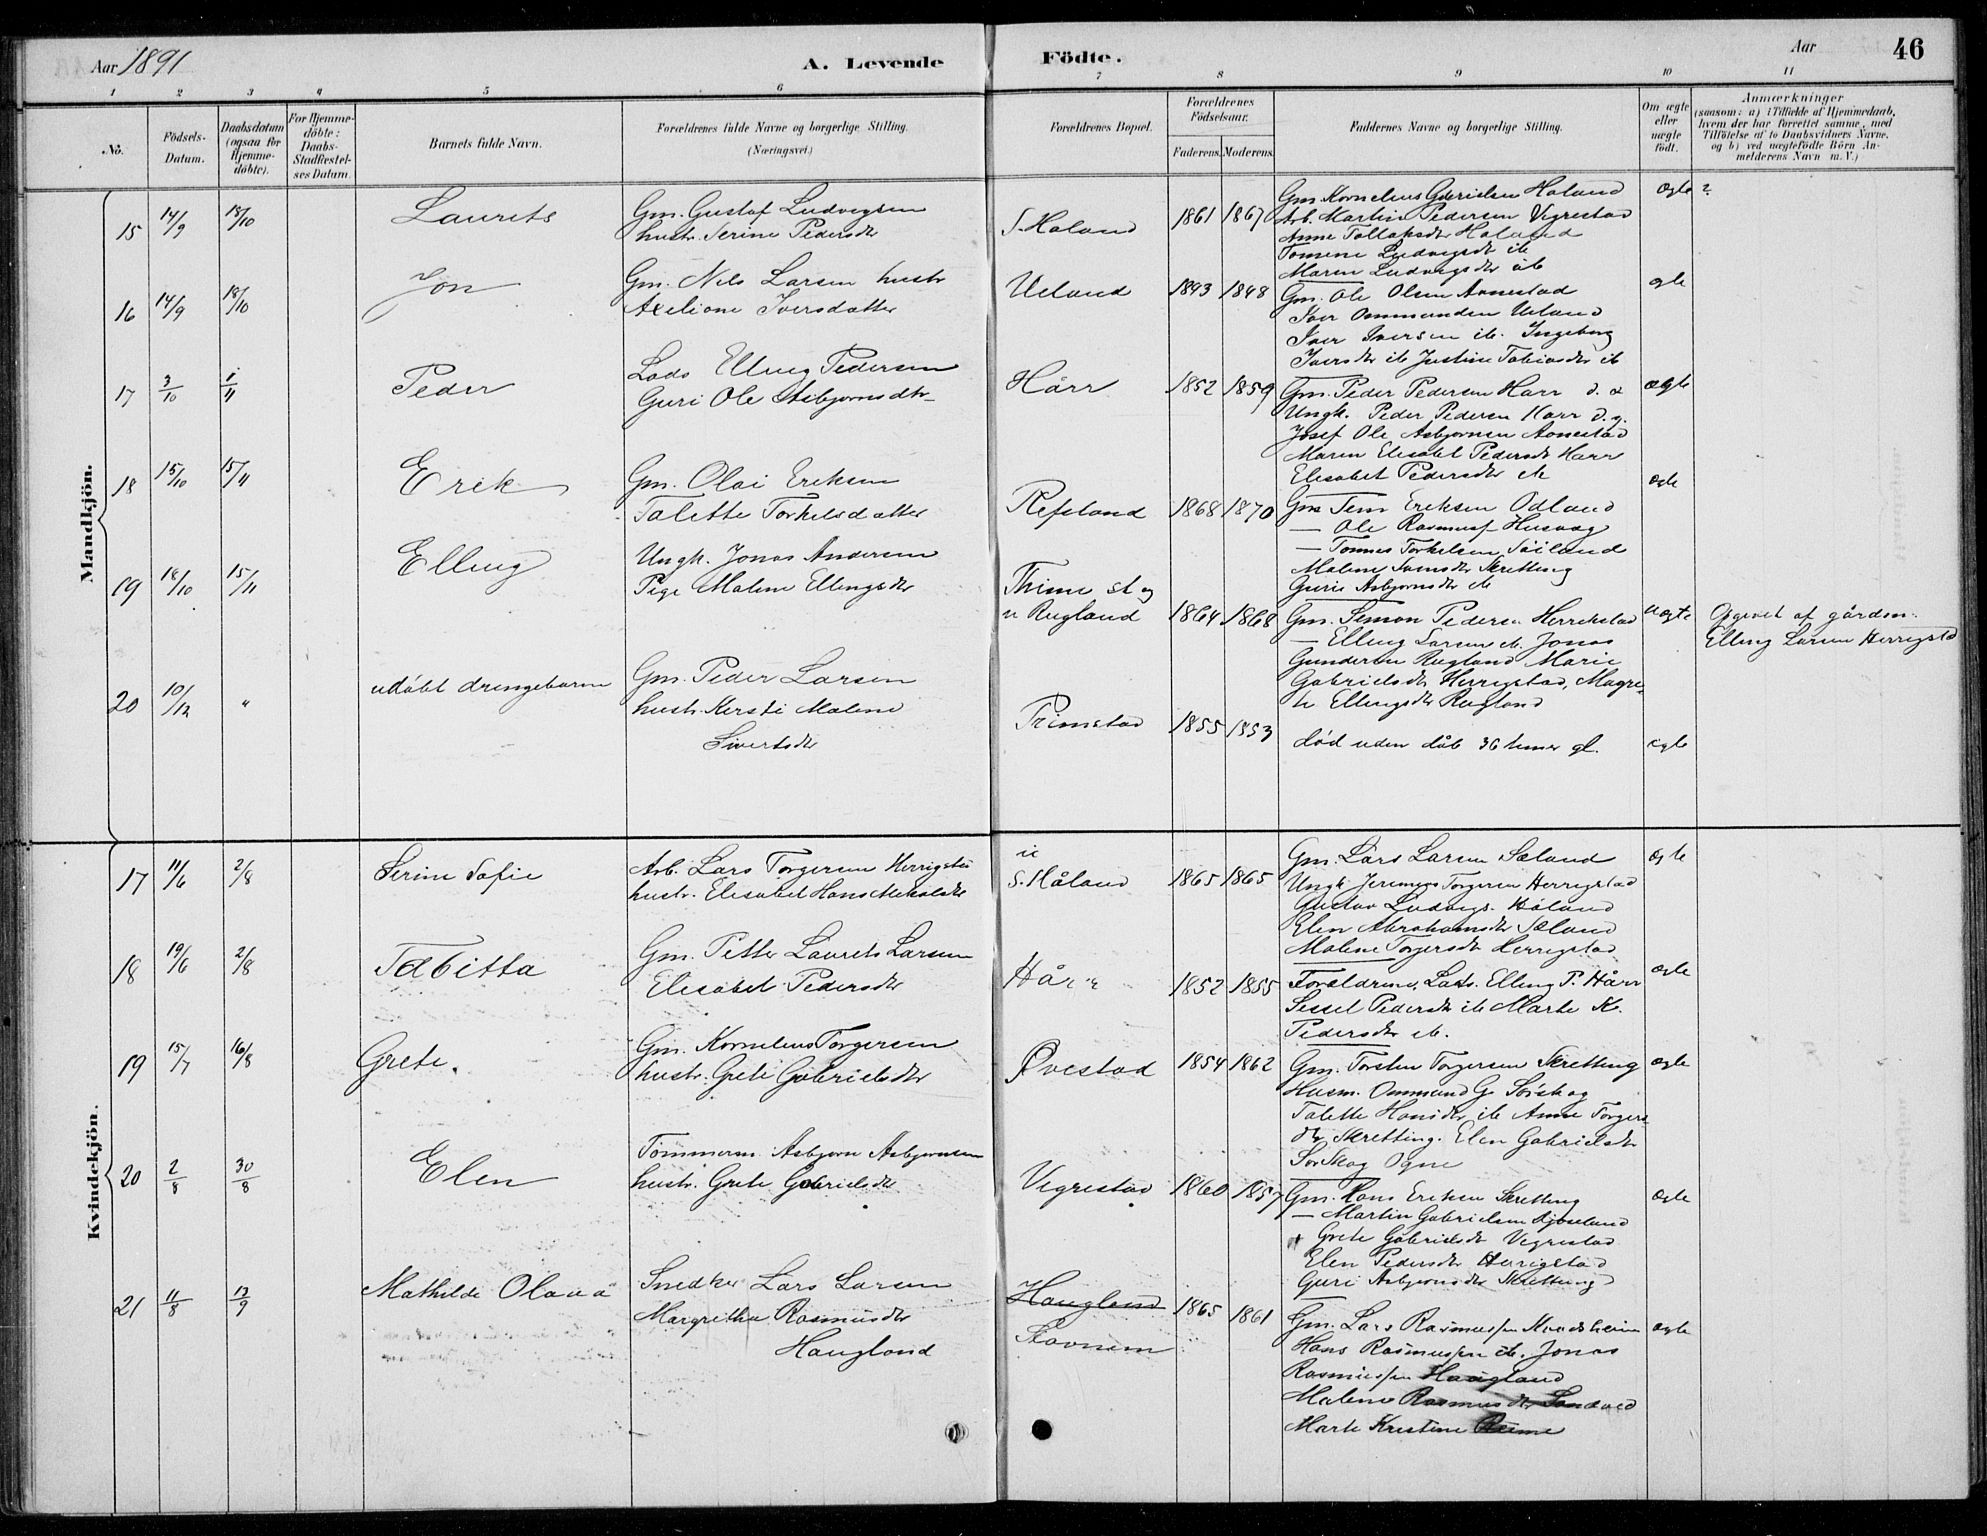 Aar 1891
A. Levende Födte.
Aar
46
1 2 3 4 5 6 7 8 9 10 11
No.
Födsels-Datum.
Daabsdatum (ogsaa for Hjemme-döbte).
For Hjemme-döbte: Daabs-Stadfæstel-ses Datum.
Barnets fulde Navn.
Forældrenes fulde Navne og borgerlige Stilling. (Næringsvei.)
Forældrenes Bopæl.
Forældrenes Födselsaar.
Faderens. Moderens.
Faddernes Navne og borgerlige Stilling.
Om ægte eller uægte födt.
Anmærkninger
(saasom: a) i Tilfælde af Hjemmedaab,
hvem der har forrettet samme, med
Tilföielse af to Daabsvidners Navne,
og b) ved uægtefödte Börn An-
melderens Navn m. V.)
Mandkjön.
15 14/9 18/10 Laurits
Gm. Gustaf Ludvigsen
hustr. Serine Pedersdtr
S. Haland 1861 1867
Gm. Kornelius Gabrielsen Haland
Arb. Martin Pedersen Vigrestad
Anne Tollaksdtr Haland
Tomine Ludvigsdt ib
Maren Ludvigsdtr ib
ægte ?
16 14/9 18/10 Jon
Gm. Nils Larsen hustr
Axeliane Iversdatter
Ueland 1843 1848
Gm. Ole Olsen Aanestad
Iver Ommundsen Ueland
Iver Iversen ib. Ingeborg
Iversdtr ib Justine Tobiasdtr ib
ægte
17 3/10 1/11 Peder
Lods Elling Pedersen
Guri Ole Asbjørnsdtr
Hårr 1852 1859
Gm. Peder Pedersen Harr d. æ
Ungk. Peder Pedersen Harr d. y.
Josef Ole Asbjørnsen Aanestad
Maren Elisabet Pedersdt Harr
Elisabet Pedersdtr ib
ægte
18 15/10 15/11 Erik
Gm. Olai Eriksen
Talette Torkelsdatter
Refsland 1868 1870
Gm Tem Eriksen Odland
— Ole Rasmuss Husvåg
— Tønnes Torkelsen Søiland
Malene Svensdtr Skretting
Guri Asbjørnsdtr ib
ægte
19 18/10 15/11 Elling
Ungk. Jonas Andersen
Pige Malene Ellingsdtr
Thime st og
n Rugland 1864 1868
Gm. Simon Peders. Herrikstad
— Elling Larsen ib. Jonas
Gundersen Rugland Marie
Gabrielsdt Herrigstad, Magre-
te Ellingsdtr Rugland
uægte
Opgivet af gårdm.
Elling Larsen Herrigstd
20 10/12 "
udøbt drengebarn
Gm. Peder Larsen
hustr. Kersti Malene
Sivertsdtr
Primstad 1855 1853
død uden dåb 36 timer gl.
ægte
Kvindekjön.
17 11/6 2/8 Serine Sofie
Arb. Lars Torgersen Herrigstd
hustr. Elisabet Hans Mikalsdtr
S. Håland 1865 1865
Gm. Lars Larsen Sæland
Ungk Jeremias Torgersen Herrigstad
Gustav Ludvigs. Håland
Elen Abrahamsdt Sæland
Malene Torgersdt Herrigstad
ægte
18 19/6 2/8 Tabitta
Gm. Petter Laurits Larsen
Elisabet Pedersdtr
Hårr 1852 1855
Foreldrene, Lods. Elling P. Hårr
Sessel Pedersdt ib Marte K.
Pedersdtr ib.
ægte
19 15/7 16/8 Grete.
Gm. Kornelius Torgersen
hustr. Grete Gabrielsdtr
Øvestad 1854 1862
Gm. Torsten Torgersen Skretting
Husm. Ommund G Sørskog
Talette Hansdtr ib Anne Torgers-
dtr Skretting. Elen Gabrielsdt
Sørskog Ogne
ægte
20 2/8 30/8 Elen
Tømmerm. Asbjørn Asbjørnsen
hustr. Grete Gabrielsdtr
Vigrestad 1860 1857
Gm. Hans Eriksen Skretting
— Martin Gabrielsen
Grete Gabrielsdt Vigrestad
Elen Pedersdtr Herigstad
Guri Asbjørnsdtr Skretting
ægte
21 11/8 13/9 Mathilde Olava
Snedker Lars Larsen
Margretha Rasmusdtr
Haugland
Haugland
Stavnem 1865 1861
Gm. Lars Rasmussen
Hans Rasmussen ib. Jonas
Rasmussen Haugland
Malene Rasmusdtr Sandved
Marte Kristine Reime
ægte